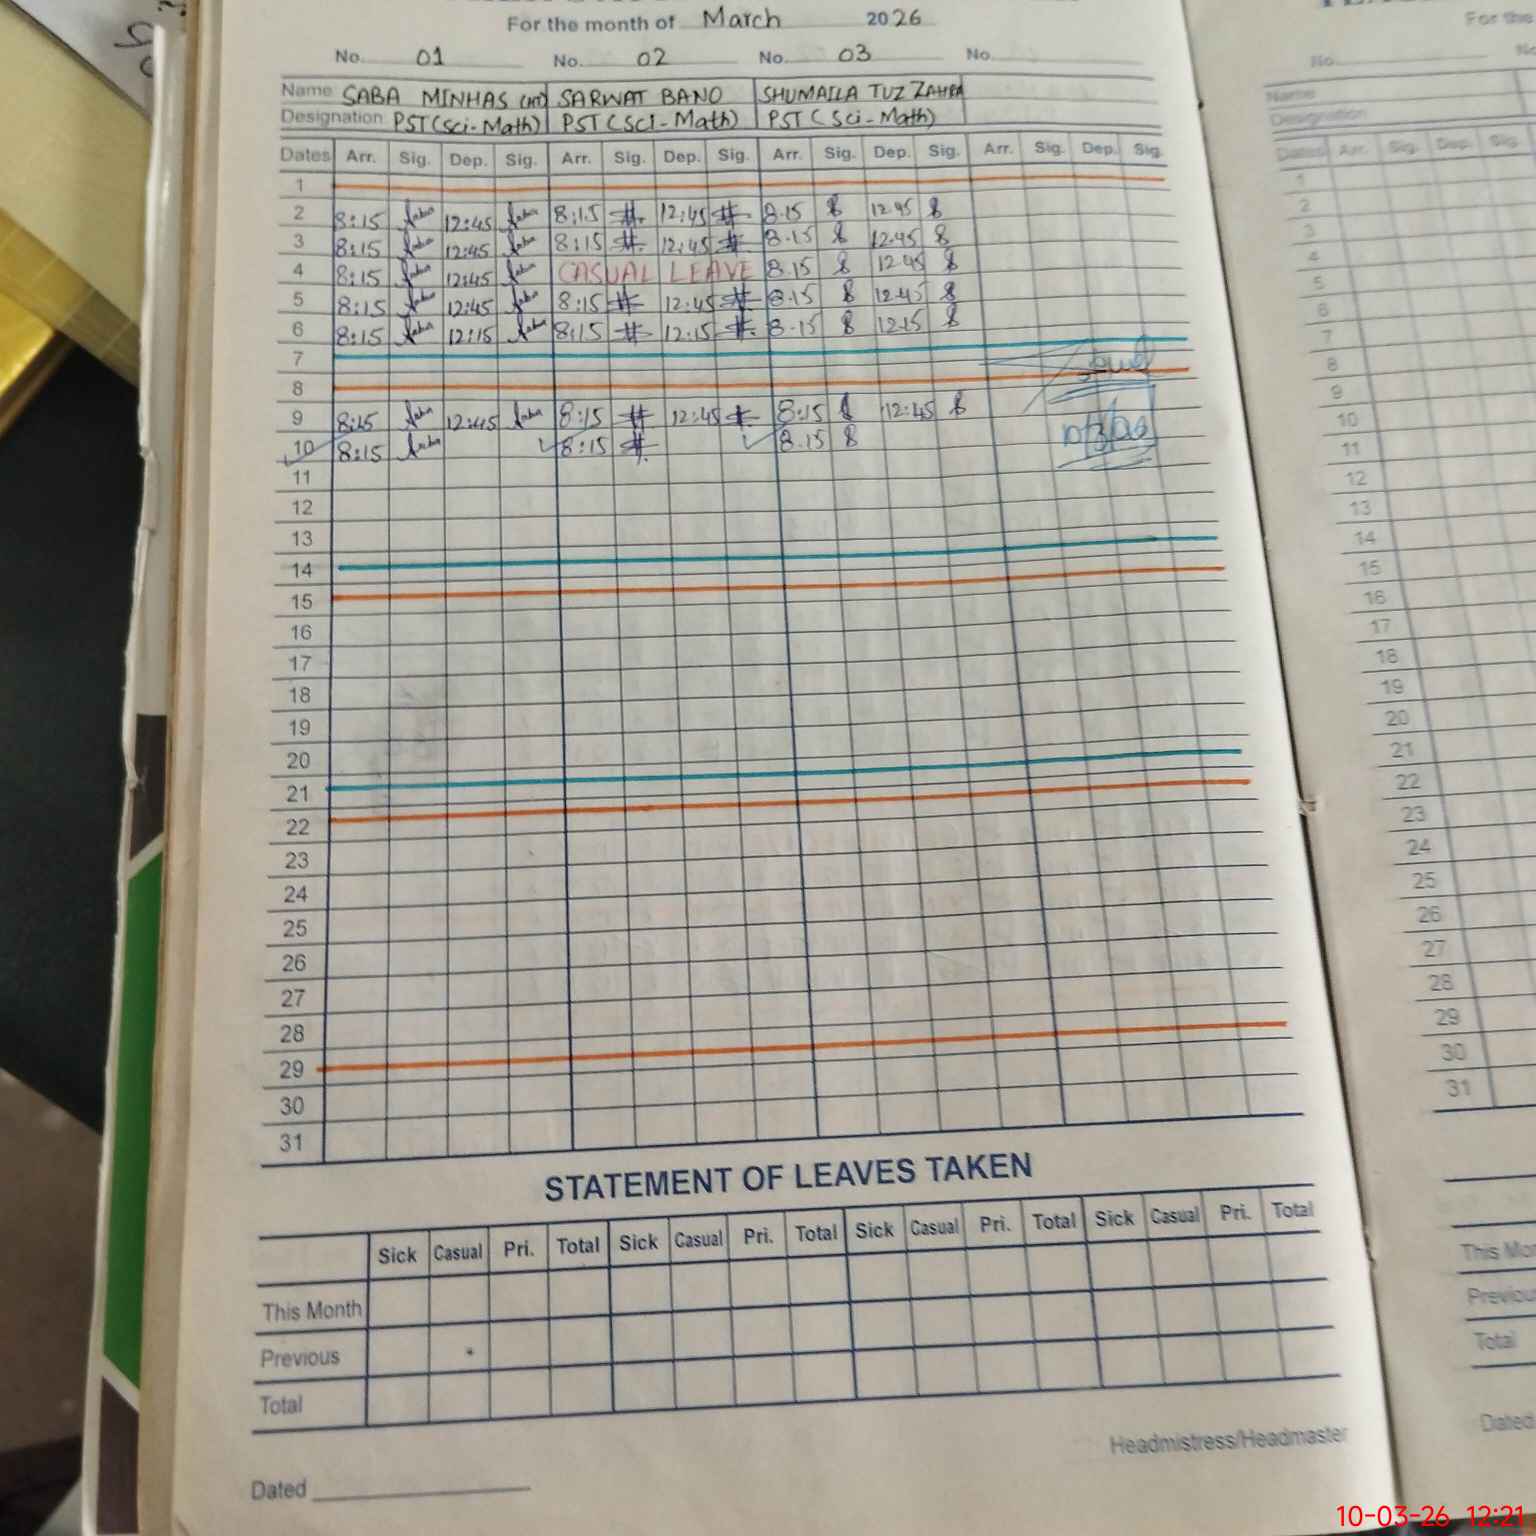 For the month of March 2026
No. 01 No. 02 No. 03 No.
Name SABA MINHAS (HT) SARWAT BANO SHUMAILA TUZ ZAHRA
Designation PST (Sci-Math) PST (SCI-Math) PST (Sci-Math)
Dates Arr. Sig. Dep. Sig. Arr. Sig. Dep. Sig. Arr. Sig. Dep. Sig. Arr. Sig. Dep. Sig.
1
2 8:15 12:45 8:15 12:45 8.15 12.45
3 8:15 12:45 8:15 12:45 8.15 12.45
4 8:15 12:45 CASUAL LEAVE 8.15 12.45
5 8:15 12:45 8:15 12:45 8.15 12.45
6 8:15 12:15 8:15 12:15 8.15 12.15
7
8
9 8:15 12:45 8:15 12:45 8:15 12:45
10 8:15 8:15 8.15
11
12
13
14
15
16
17
18
19
20
21
22
23
24
25
26
27
28
29
30
31
STATEMENT OF LEAVES TAKEN
Sick Casual Pri. Total Sick Casual Pri. Total Sick Casual Pri. Total Sick Casual Pri. Total
This Month
Previous
Total
Headmistress/Headmaster
Dated
For the
No. No
Name
Designation
Dates Arr. Sig. Dep. Sig.
1
2
3
4
5
6
7
8
9
10
11
12
13
14
15
16
17
18
19
20
21
22
23
24
25
26
27
28
29
30
31
This Mon
Previou
Total
Dated
10-03-26 12:21